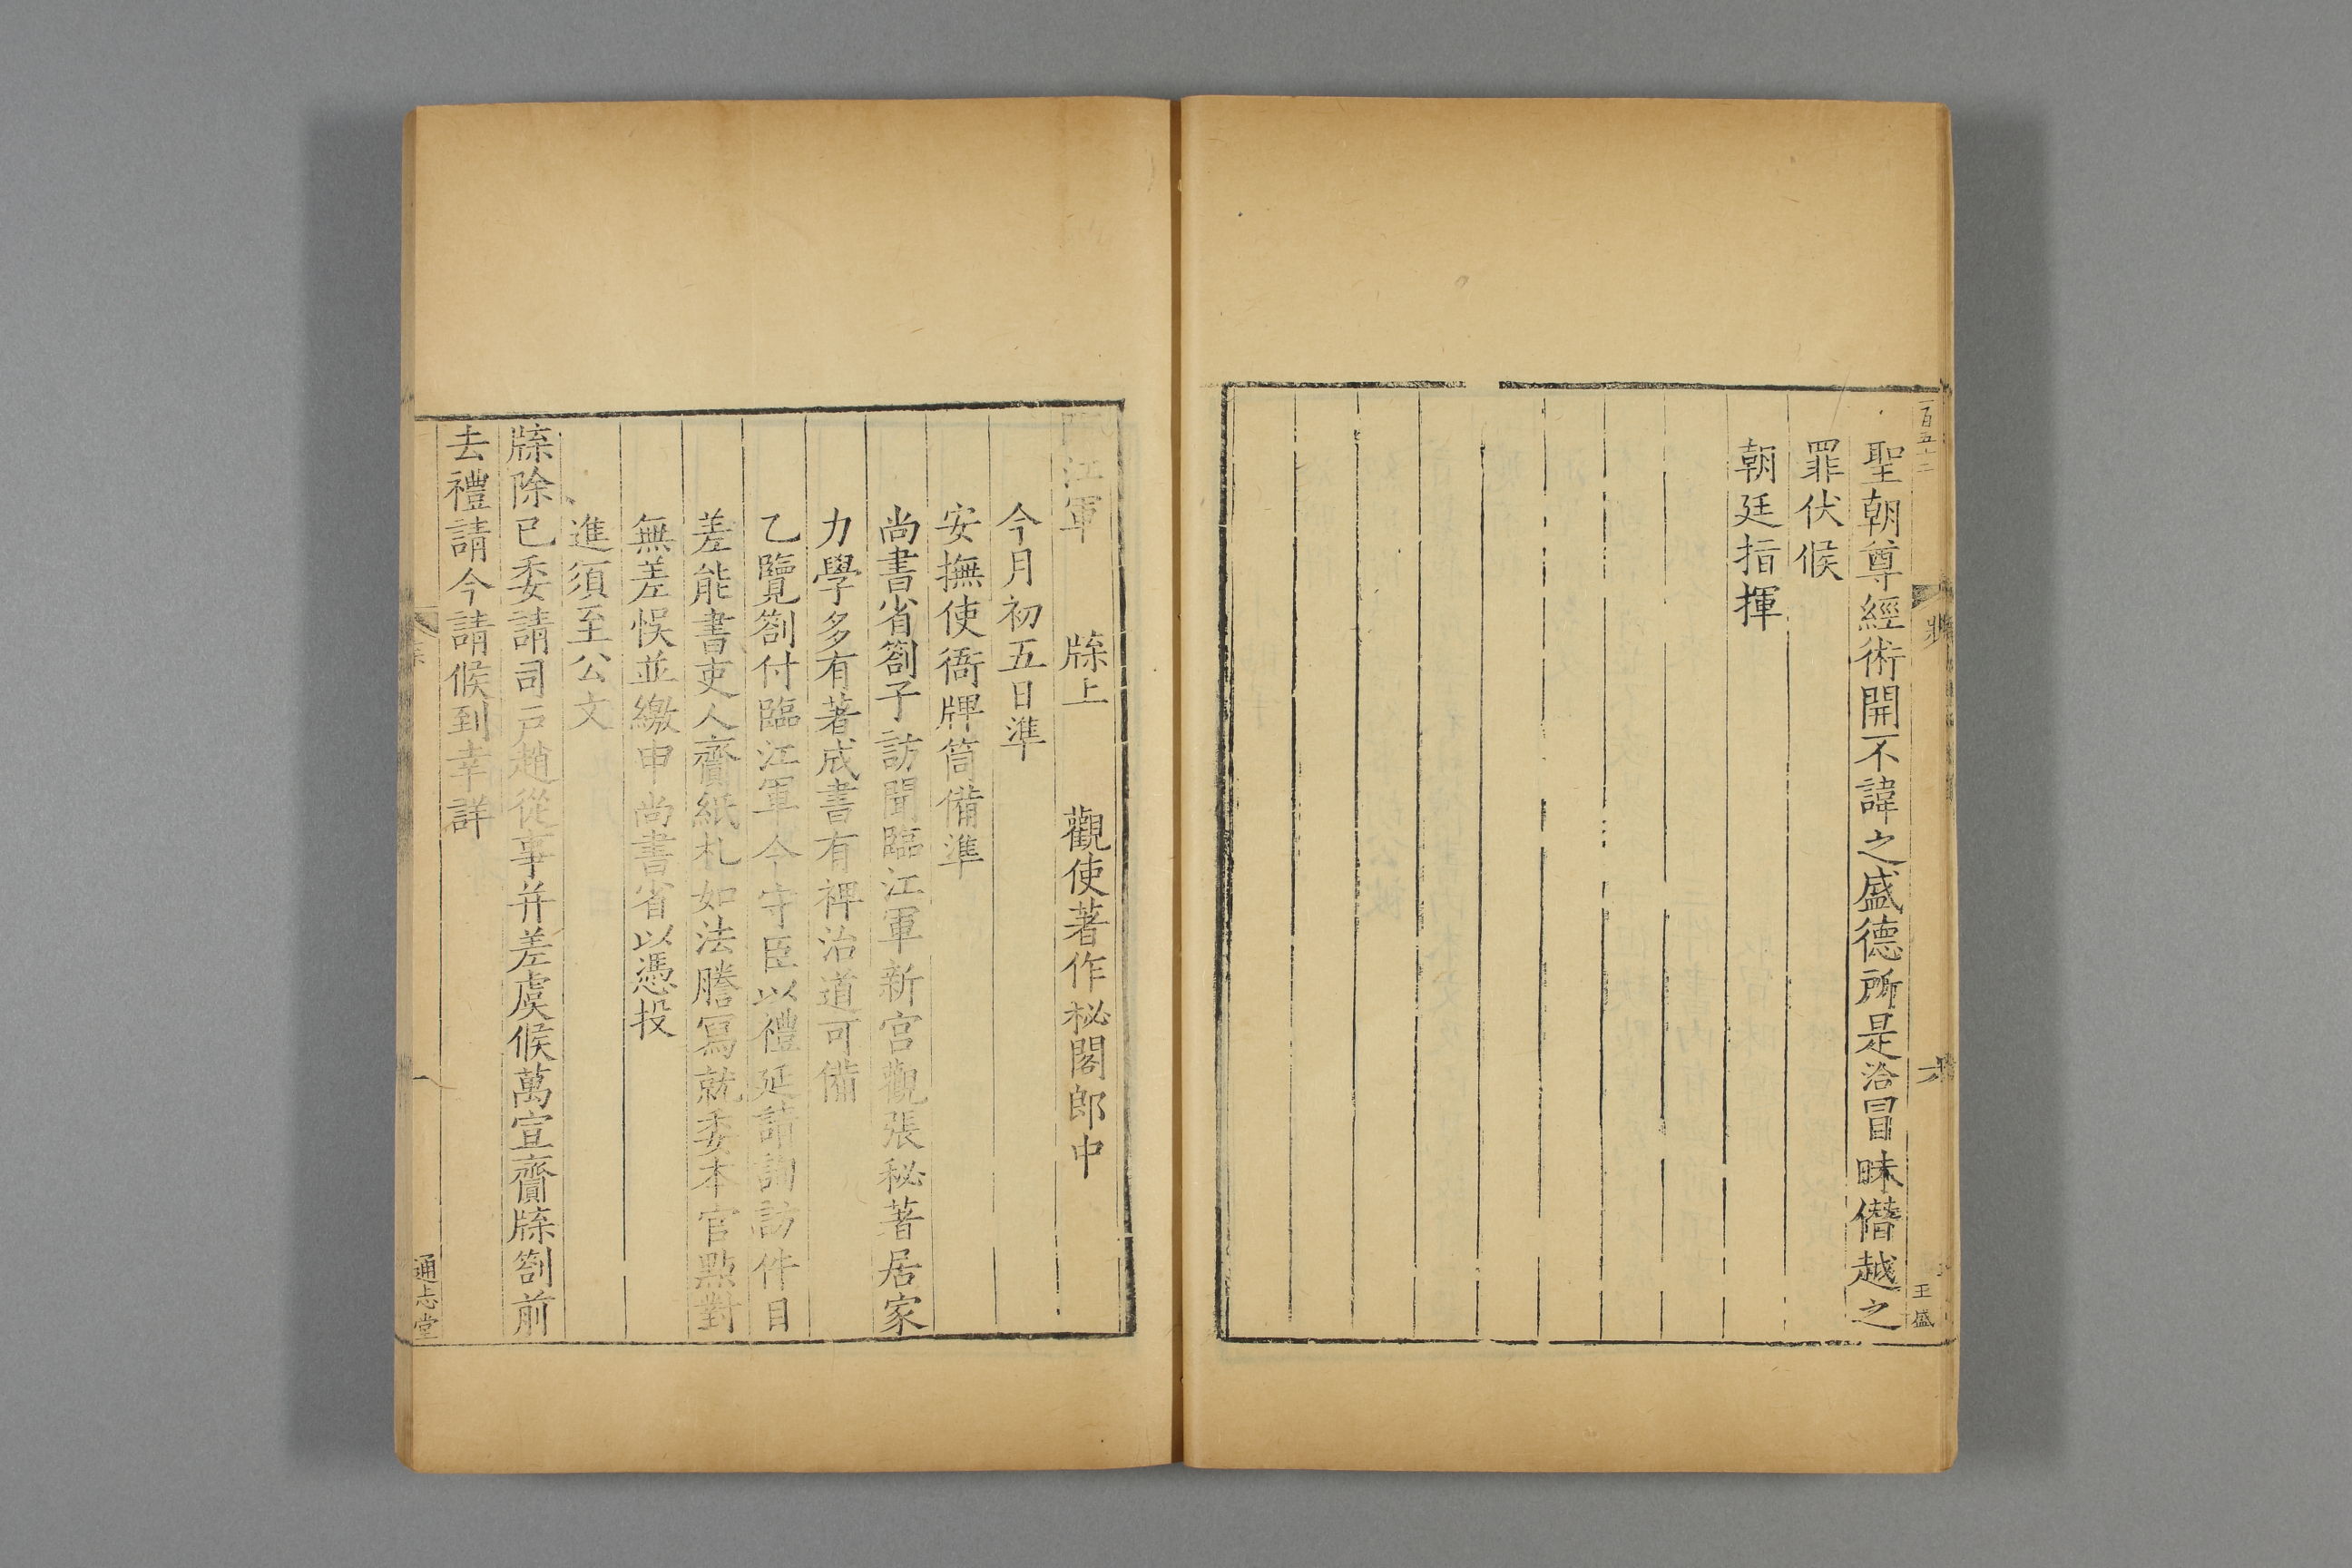 一百五十二
聖朝尊經術開不諱之盛德所是洽冒昧僭越之
罪伏候
朝廷指揮
狀
王盛
臨江軍 牒上 觀使著作秘閣郎中
今月初五日準
安撫使衙牌筒備準
尚書省劄子訪聞臨江軍新宫觀張秘著居家
力學多有著成書有裨治道可備
乙覽劄付臨江軍令守臣以禮延請詢訪件目
差能書吏人齎紙札如法謄寫就委本官點對
無差悮並繳申尚書省以憑投
進須至公文
牒除已委請司戶趙從事并差虞候萬宣齎牒劄前
去禮請今請候到幸詳
一
通志堂